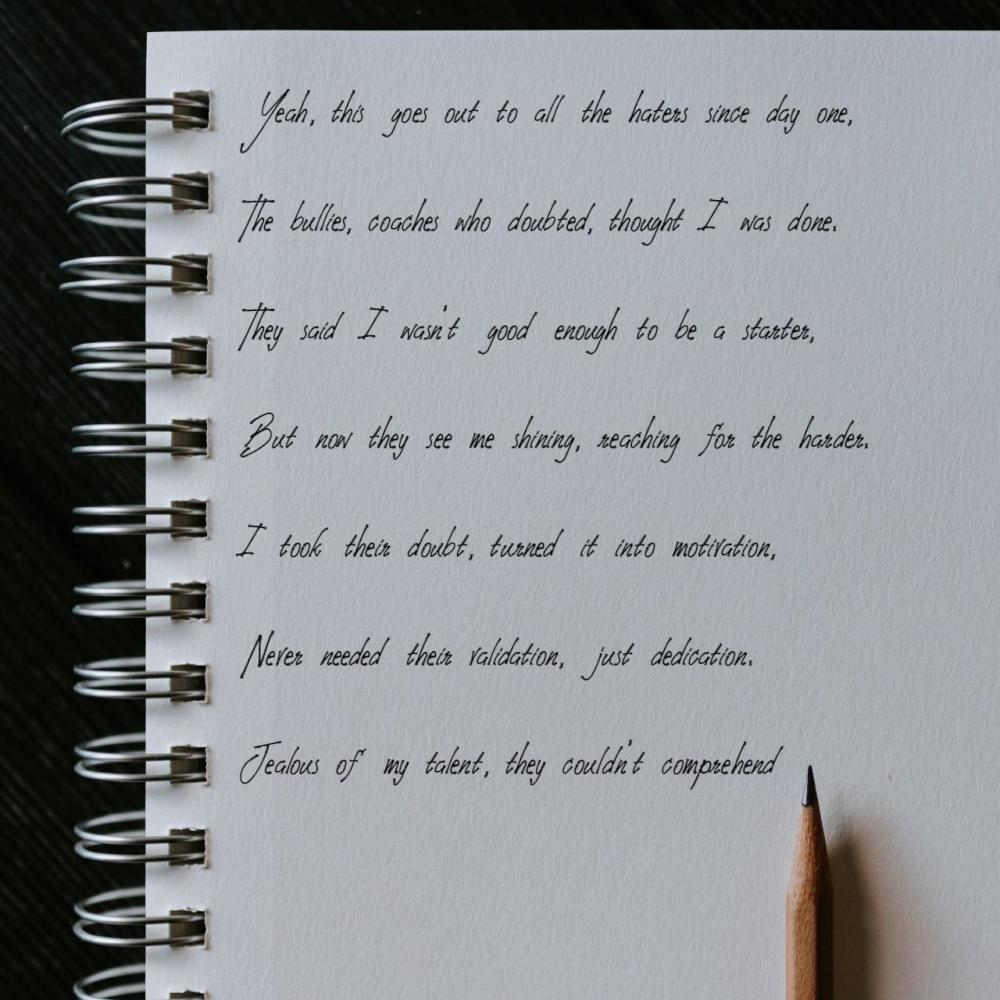 Yeah, this goes out to all the haters since day one,
The bullies, coaches who doubted, thought I was done.
They said I wasn't good enough to be a starter,
But now they see me shining, reaching for the harder.
I took their doubt, turned it into motivation,
Never needed their validation, just dedication.
Jealous of my talent, they couldn't comprehend